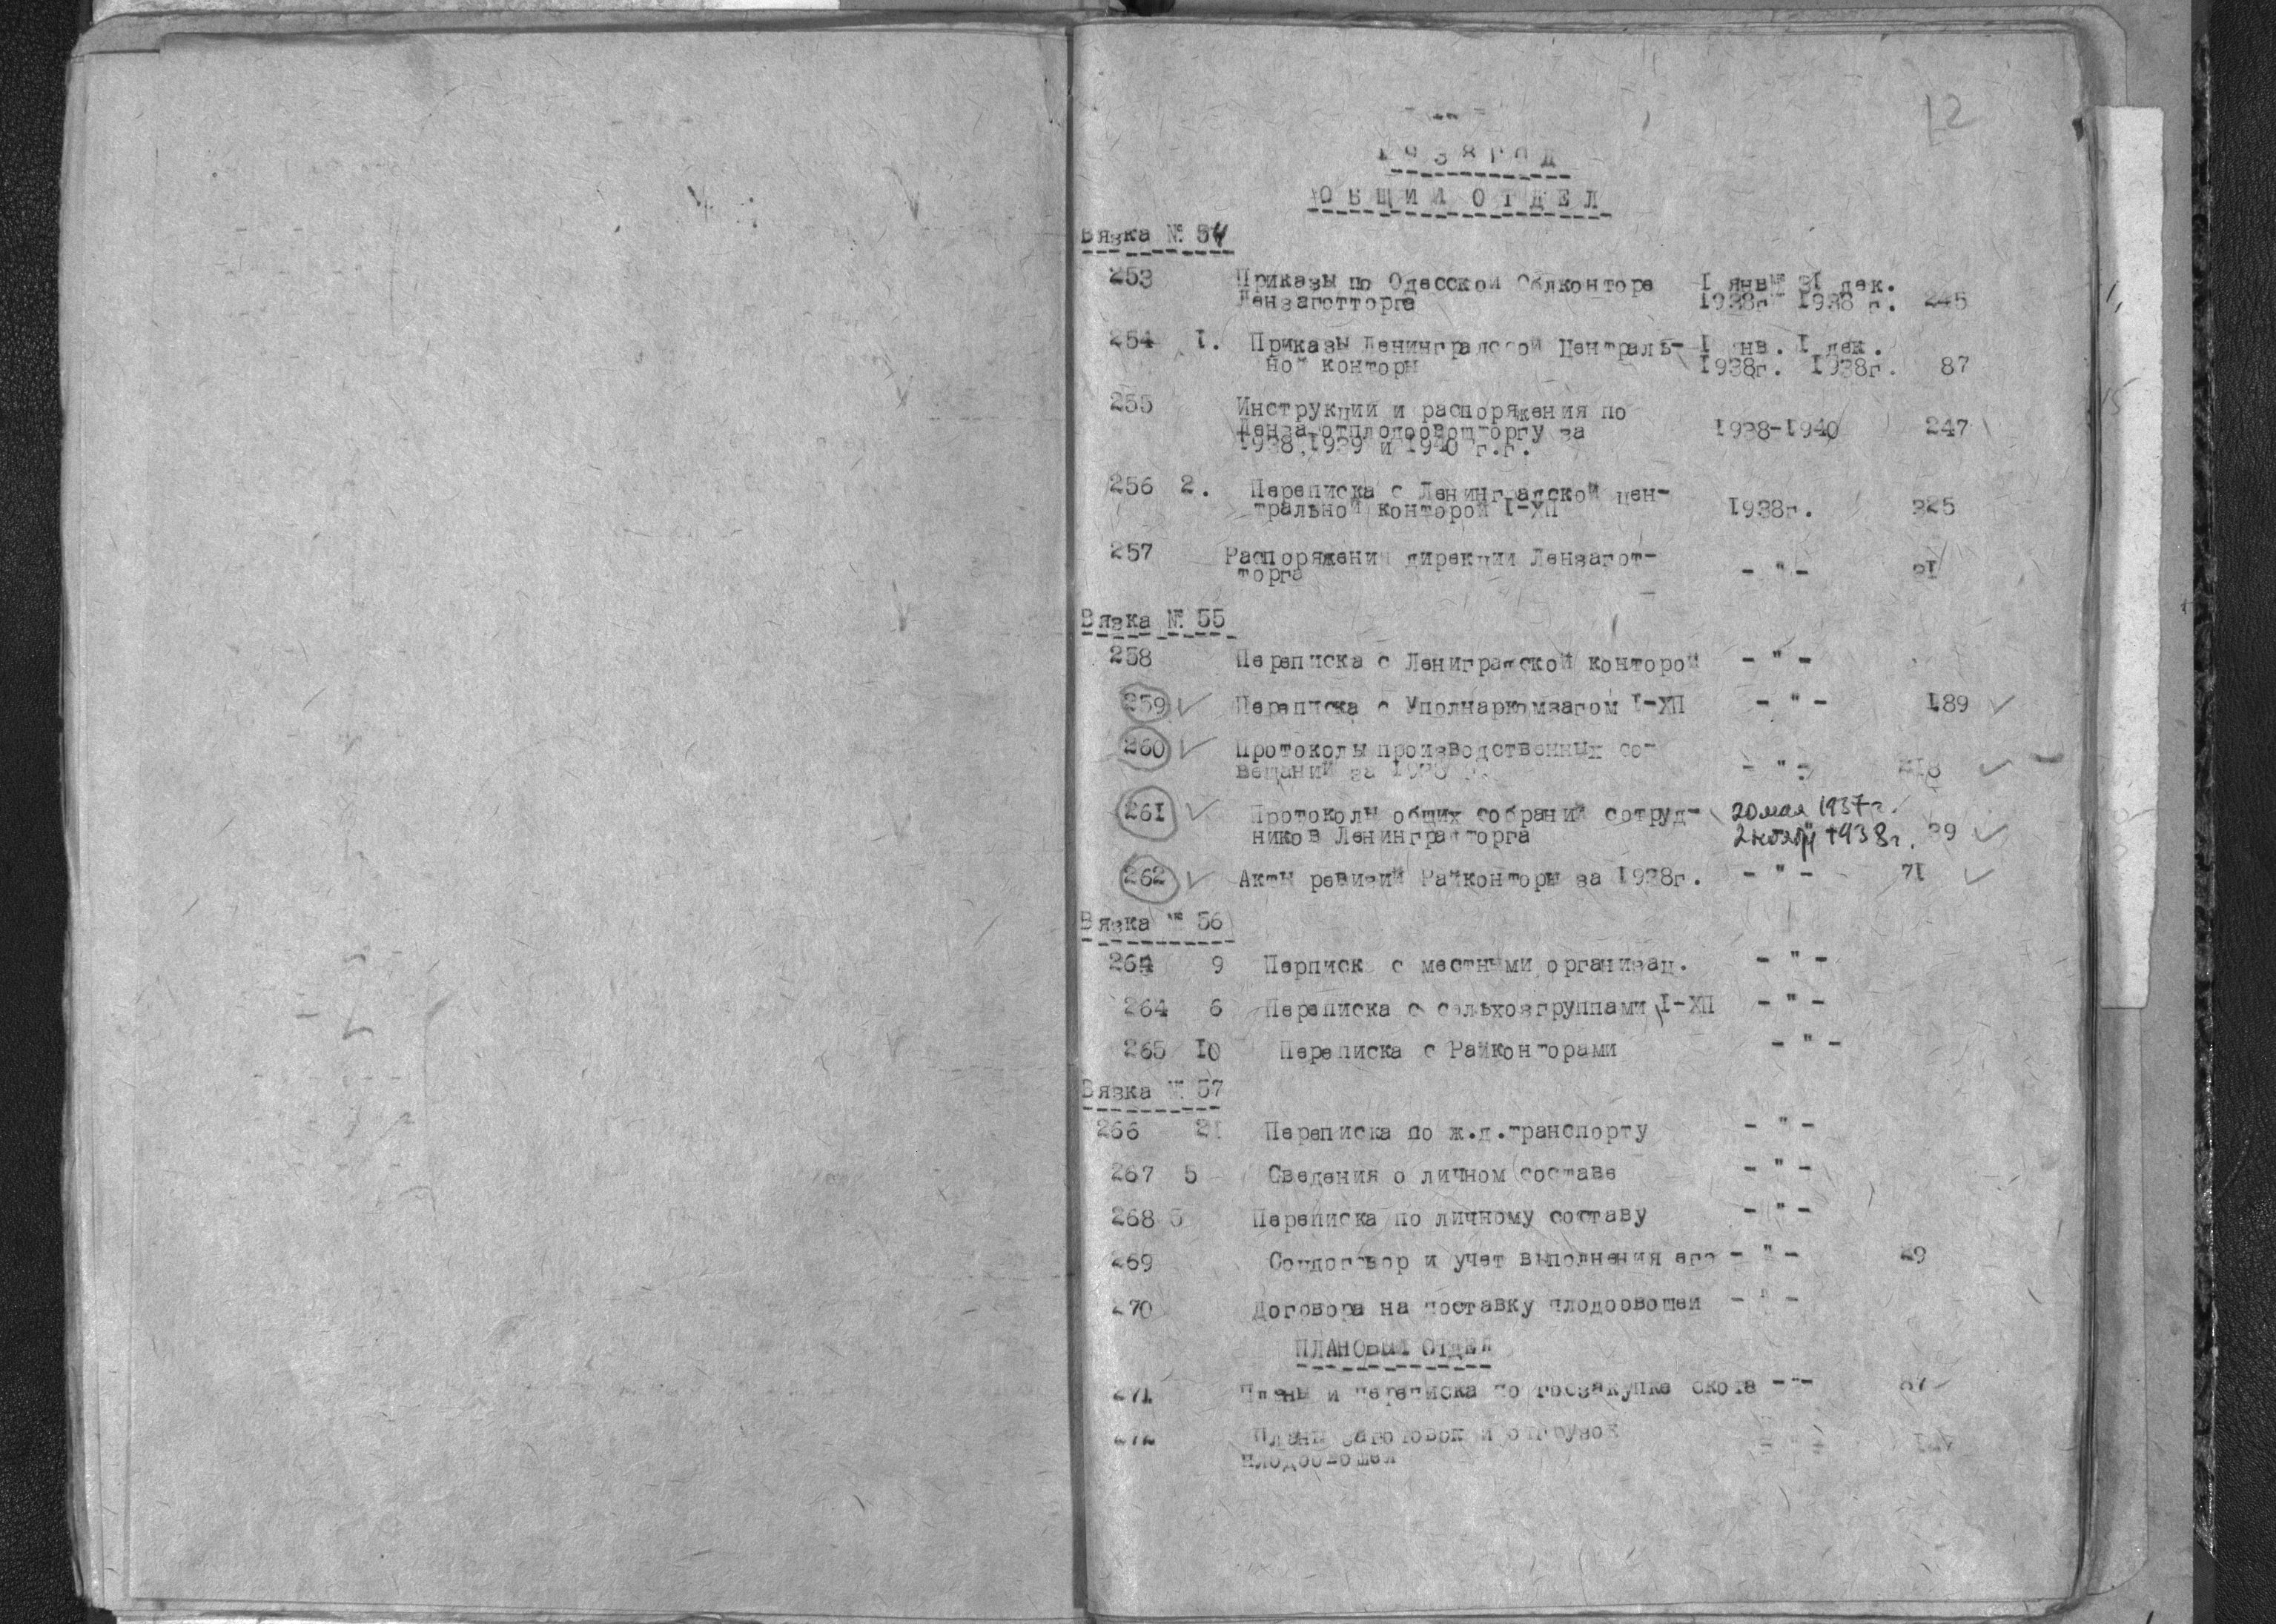 12
1938 ГОД
ОБЩИЙ ОТДЕЛ
Вязка № 54
253 Приказы по Одесской Облконторе I янв. 31 дек.
Лензаготторга 1938г 1938 г. 245
254 I. Приказы Ленинградской Централь- I янв. I дек.
ной конторы 1938г. 1938г. 87
255 Инструкции и распоряжения по
Лензаготплодоовощторгу за 1938-1940 247
1938,1939 и 1940 г.г.
256 2. Переписка с Ленинградской цен-
тральной конторой I-ХП 1938г. 325
257 Распоряжения дирекции Лензагот-
торга - " -
Вязка № 55
258 Переписка с Лениградской конторой - " -
259 Переписка с Уполнаркомзагом I-ХП - " - 189
260 Протоколы производственных со-
вещаний за 1938 - " - 218
261 Протоколы общих собраний сотруд- 20 мая 1937 г.
ников Ленинградторга 2 ноябр 1938г. 39
262 Акты ревизий Райконторы за 1938г. - " - 71
Вязка № 56
264 9 Перписка с местными организац. - " -
264 6 Переписка с сельхозгруппами I-ХП - " -
265 10 Переписка с Райконторами - " -
Вязка № 57
266 21 Переписка по ж.д.транспорту - " -
267 5 Сведения о личном составе - " -
268 5 Переписка по личному составу - " -
269 Соцдоговор и учет выполнения его - " - 29
270 Договора на поставку плодоовощей - " -
ПЛАНОВЫЙ ОТДЕЛ
271 Планы и переписка по госзакупке скота - " - 87
272 Планы заготовок и отгрузок - " -
плодоовощей